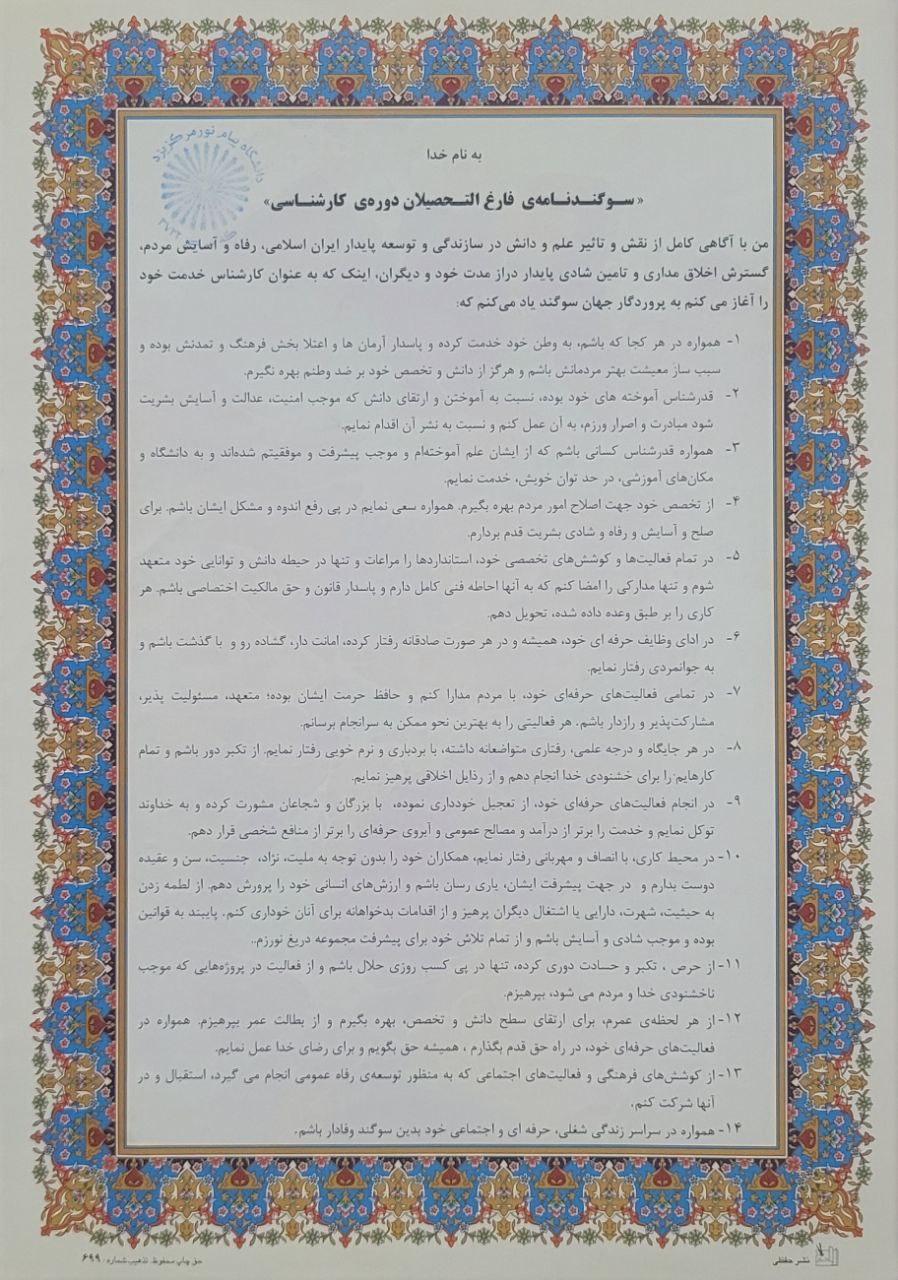 به نام خدا
دانشگاه پیام نور مرکز یزد
«سوگندنامه‌ی فارغ التحصیلان دوره‌ی کارشناسی»
من با آگاهی کامل از نقش و تاثیر علم و دانش در سازندگی و توسعه پایدار ایران اسلامی، رفاه و آسایش مردم،
گسترش اخلاق مداری و تامین شادی پایدار دراز مدت خود و دیگران، اینک که به عنوان کارشناس خدمت خود
را آغاز می کنم به پروردگار جهان سوگند یاد می‌کنم که:
۱- همواره در هر کجا که باشم، به وطن خود خدمت کرده و پاسدار آرمان ها و اعتلا بخش فرهنگ و تمدنش بوده و
سبب ساز معیشت بهتر مردمانش باشم و هرگز از دانش و تخصص خود بر ضد وطنم بهره نگیرم.
۲- قدرشناس آموخته های خود بوده، نسبت به آموختن و ارتقای دانش که موجب امنیت، عدالت و آسایش بشریت
شود مبادرت و اصرار ورزم، به آن عمل کنم و نسبت به نشر آن اقدام نمایم.
۳- همواره قدرشناس کسانی باشم که از ایشان علم آموخته‌ام و موجب پیشرفت و موفقیتم شده‌اند و به دانشگاه و
مکان‌های آموزشی، در حد توان خویش، خدمت نمایم.
۴- از تخصص خود جهت اصلاح امور مردم بهره بگیرم. همواره سعی نمایم در پی رفع اندوه و مشکل ایشان باشم. برای
صلح و آسایش و رفاه و شادی بشریت قدم بردارم.
۵- در تمام فعالیت‌ها و کوشش‌های تخصصی خود، استانداردها را مراعات و تنها در حیطه دانش و توانایی خود متعهد
شوم و تنها مدارکی را امضا کنم که به آنها احاطه فنی کامل دارم و پاسدار قانون و حق مالکیت اختصاصی باشم. هر
کاری را بر طبق وعده داده شده، تحویل دهم.
۶- در ادای وظایف حرفه ای خود، همیشه و در هر صورت صادقانه رفتار کرده، امانت دار، گشاده رو و با گذشت باشم و
به جوانمردی رفتار نمایم.
۷- در تمامی فعالیت‌های حرفه‌ای خود، با مردم مدارا کنم و حافظ حرمت ایشان بوده؛ متعهد، مسئولیت پذیر،
مشارکت‌پذیر و رازدار باشم. هر فعالیتی را به بهترین نحو ممکن به سرانجام برسانم.
۸- در هر جایگاه و درجه علمی، رفتاری متواضعانه داشته، با بردباری و نرم خویی رفتار نمایم. از تکبر دور باشم و تمام
کارهایم را برای خشنودی خدا انجام دهم و از رذایل اخلاقی پرهیز نمایم.
۹- در انجام فعالیت‌های حرفه‌ای خود، از تعجیل خودداری نموده، با بزرگان و شجاعان مشورت کرده و به خداوند
توکل نمایم و خدمت را برتر از درآمد و مصالح عمومی و آبروی حرفه‌ای را برتر از منافع شخصی قرار دهم.
۱۰- در محیط کاری، با انصاف و مهربانی رفتار نمایم، همکاران خود را بدون توجه به ملیت، نژاد، جنسیت، سن و عقیده
دوست بدارم و در جهت پیشرفت ایشان، یاری رسان باشم و ارزش‌های انسانی خود را پرورش دهم. از لطمه زدن
به حیثیت، شهرت، دارایی یا اشتغال دیگران پرهیز و از اقدامات بدخواهانه برای آنان خوداری کنم. پایبند به قوانین
بوده و موجب شادی و آسایش باشم و از تمام تلاش خود برای پیشرفت مجموعه دریغ نورزم..
۱۱- از حرص ، تکبر و حسادت دوری کرده، تنها در پی کسب روزی حلال باشم و از فعالیت در پروژه‌هایی که موجب
ناخشنودی خدا و مردم می شود، بپرهیزم.
۱۲- از هر لحظه‌ی عمرم، برای ارتقای سطح دانش و تخصص، بهره بگیرم و از بطالت عمر بپرهیزم. همواره در
فعالیت‌های حرفه‌ای خود، در راه حق قدم بگذارم ، همیشه حق بگویم و برای رضای خدا عمل نمایم.
۱۳- از کوشش‌های فرهنگی و فعالیت‌های اجتماعی که به منظور توسعه‌ی رفاه عمومی انجام می گیرد، استقبال و در
آنها شرکت کنم.
۱۴- همواره در سراسر زندگی شغلی، حرفه ای و اجتماعی خود بدین سوگند وفادار باشم.
نشر حفظی
حق چاپ محفوظ. تذهیب شماره: ۶۹۹